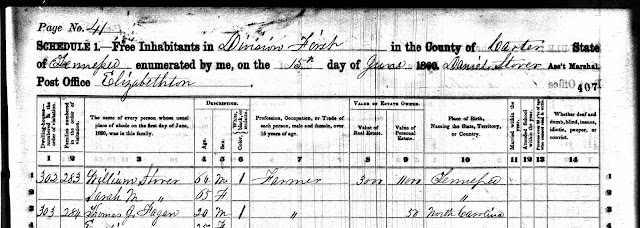 Page No. 41
SCHEDULE 1.—Free Inhabitants in Division First in the County of Carter State
of Tennessee enumerated by me, on the 15th day of June 1860. Daniel Stover Ass't Marshal.
Post Office Elizabethton
407
DESCRIPTION. VALUE OF ESTATE OWNED.
Dwelling-houses— numbered in the order of visitation.
Families numbered in the order of visitation.
The name of every person whose usual place of abode on the first day of June, 1860, was in this family.
Age. Sex. Color.
Profession, Occupation, or Trade of each person, male and female, over 15 years of age.
Value of Real Estate.
Value of Personal Estate.
Place of Birth, Naming the State, Territory, or Country.
Married within the year.
Whether deaf and dumb, blind, insane, idiotic, pauper, or convict.
1 2 3 4 5 6 7 8 9 10 11 12 13 14
1 302 283 William Stover M 1 Farmer 3000 Tennessee 1
2 Sarah M " 65 F " 2
3 303 284 Thomas J. Fagan 20 M 1 " 50 North Carolina 3